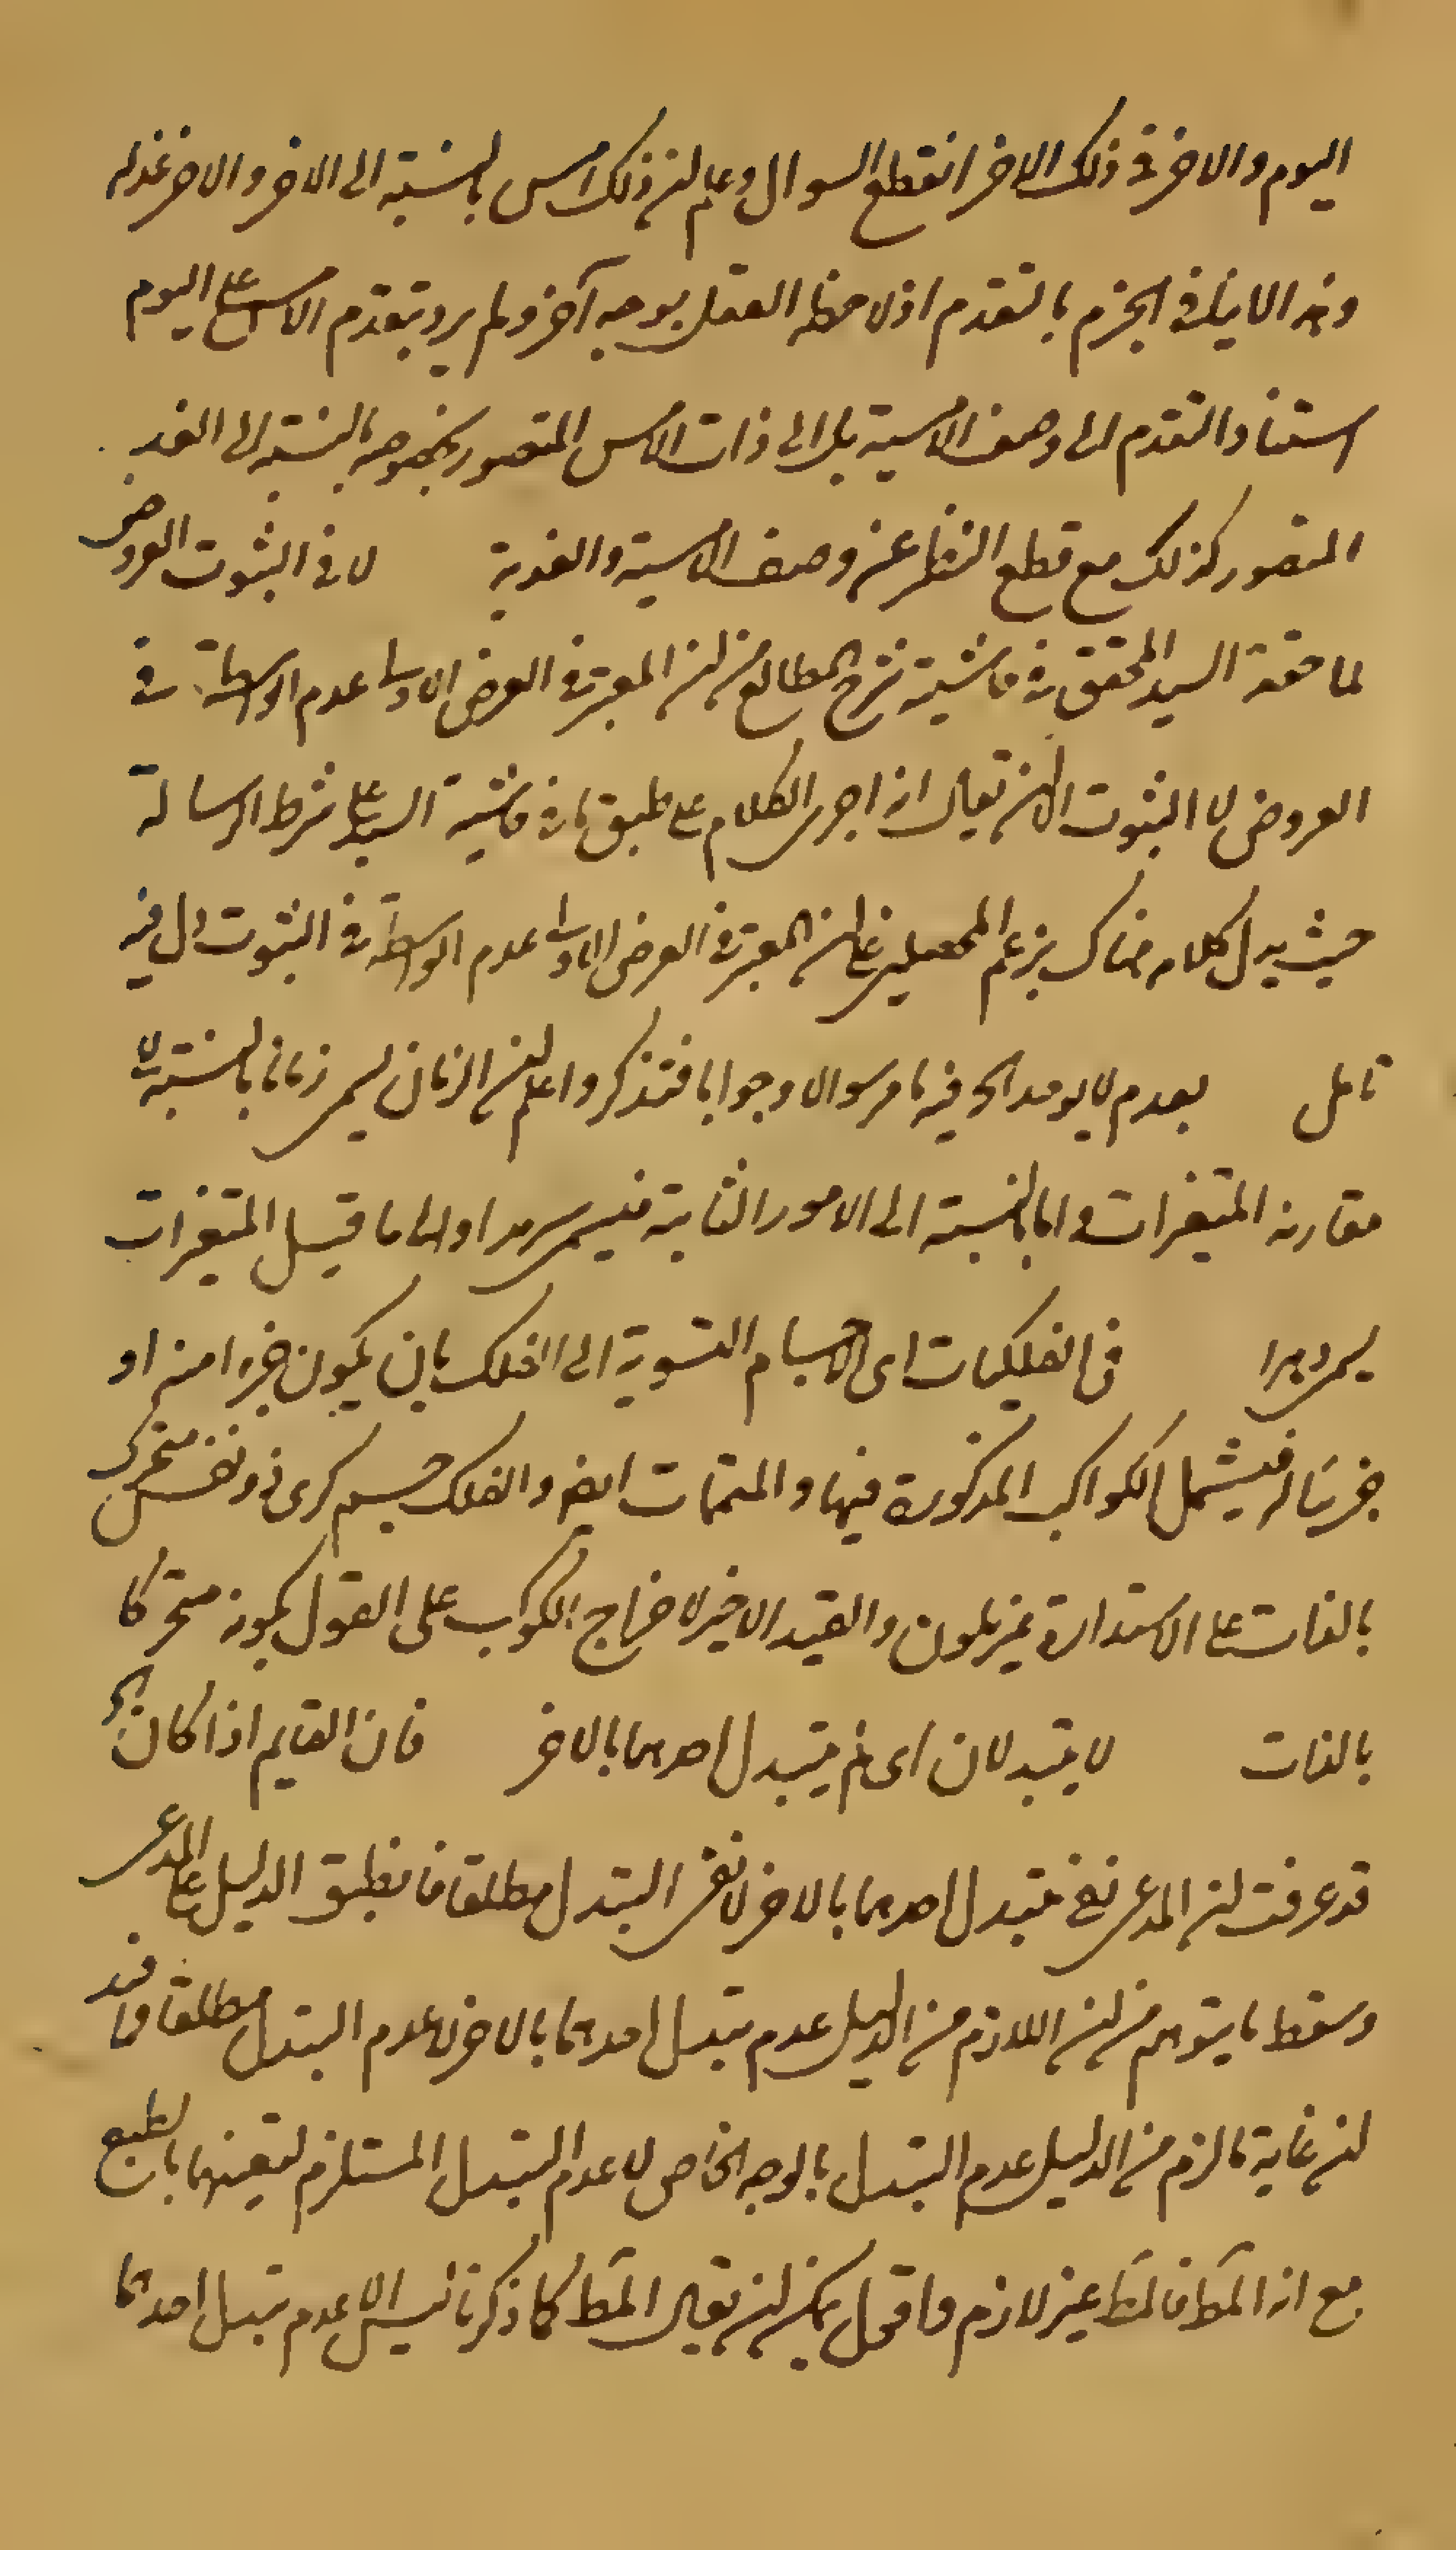 اليوم والاخر في ذلك الاخر انقطع السوال وعلم ان ذلك امس بالنسبة الى الاخر والاخر غد له
وهذا لا ينافي الجزم بالتقدم اذ لاحظه العقل بوجه آخر ولم يرد بتقدم الامس على اليوم
استناد التقدم الى وصف الامسية بل الى ذات الامس المتصور بخصوصه بالنسبة الى الغد
المتصور كذلك مع قطع النظر عن وصف الامسية والغدية لا في الثبوت العروض
لما حققه السيد المحقق في حاشية شرح المطالع من ان المعتبر في العرض الاولى عدم الواسطة في
العروض لا الثبوت الا ان يقال انه اجرى الكلام على طبق ما في حاشية السيد على شرط الرسالة
حيث يدل كلامه هناك بزعم المحصلين على ان المعتبر في العرض الاولى عدم الواسطة في الثبوت وفيه
تامل بعدم لا يوجد الخ فيه ما مر سوالا وجوابا فتذكر واعلم ان الزمان يسمى زمانا بالنسبة الى
مقارنه المتغيرات واما بالنسبة الى الامور الثابتة فيسمى سرمدا والى ما قبل المتغيرات
يسمى دهرا في الفلكيات اى الاجسام المنسوبة الى الفلك بان يكون جزءا منه او
جزئيا له فيشمل الكواكب المذكورة فيها والمتممات ايضا والفلك جسم كرى ذو نفس متحرك
بالذات على الاستدارة غير ملون والقيد الاخير لاخراج الكواكب على القول بكونه متحركا
بالذات لا يتبدلان اى لم يتبدل احدهما بالاخر فان القايم اذا كان الخ
قد عرفت ان المدعى نفى تبدل احدهما بالاخر لا نفى التبدل مطلقا فانطبق الدليل على المدعى
وسقط ما يتوهم من ان اللازم من الدليل عدم تبدل احدهما بالاخر لا عدم التبدل مطلقا فافد
ان غاية ما لزم من الدليل عدم التبدل بالوجه الخاص لا عدم التبدل المستلزم لتعينهما بالطبع
مع انه المط فالمط غير لازم فاقول يمكن ان يقال المط كما ذكرنا ليس الا عدم تبدل احدهما